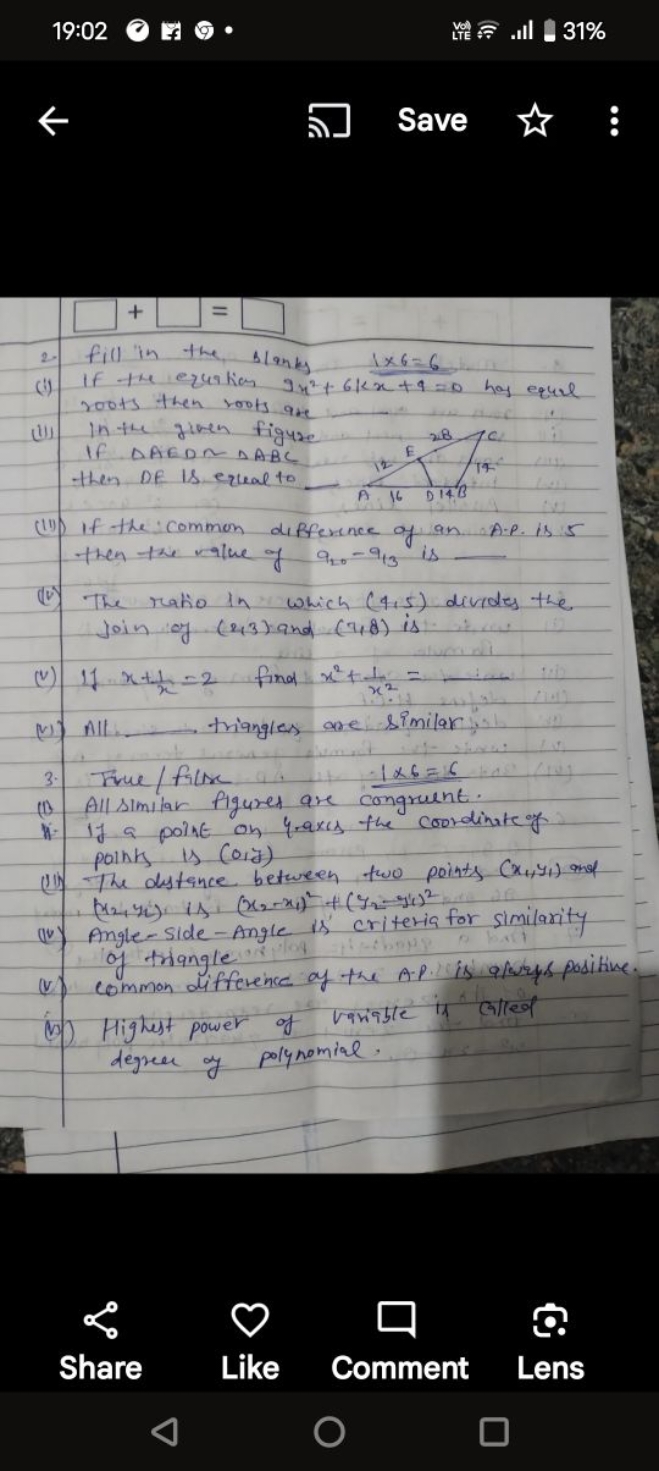 19:02
Vo) LTE 31%
Save
+ =
2. fill in the blanks 1x6=6
(i) If the equation 9x²+6kx+4=0 has equal
roots then roots are
(ii) In the given figure
If ΔAED ~ ΔABC
then DE is equal to
A 16 D 14 B 12 E 28 C 14
(iii) If the common difference of an A.P. is 5
then the value of a₂₀-a₁₃ is
(iv) The ratio in which (4,5) divides the
join of (2,3) and (7,8) is
(v) If x+1/x=2 find x²+1/x² =
(vi) All triangles are similar.
3. True/false 1x6=6
(i) All similar figures are congruent.
ii. If a point on y-axis the coordinate of
points is (0,y)
(iii) The distance between two points (x₁,y₁) and
(x₂,y₂) is (x₂-x₁)²+(y₂-y₁)²
(iv) Angle-Side-Angle is criteria for similarity
of triangle
(v) common difference of the A.P. is always positive.
(vi) Highest power of variable is called
degree of polynomial.
Share Like Comment Lens